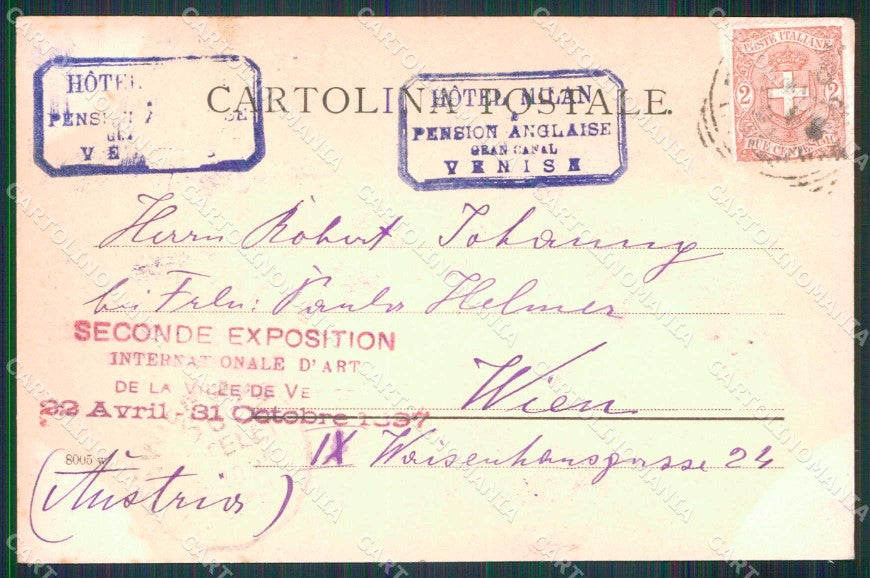 CARTOLINA POSTALE.
HÔTEL
PENSION
VE
HÔTEL MILAN
&
PENSION ANGLAISE
GRAN CANAL
VENISE
POSTE ITALIANE
2 2
DUE CENTESIMI
Herrn Robert Johanny
bei Frln: Paula Helmer
SECONDE EXPOSITION
INTERNATIONALE D'ART
DE LA VILLE DE VE
22 Avril - 31 Octobre 1897
Wien
8005
IX Waisenhausgasse 24
(Austria)
CARTOLINOMANIA